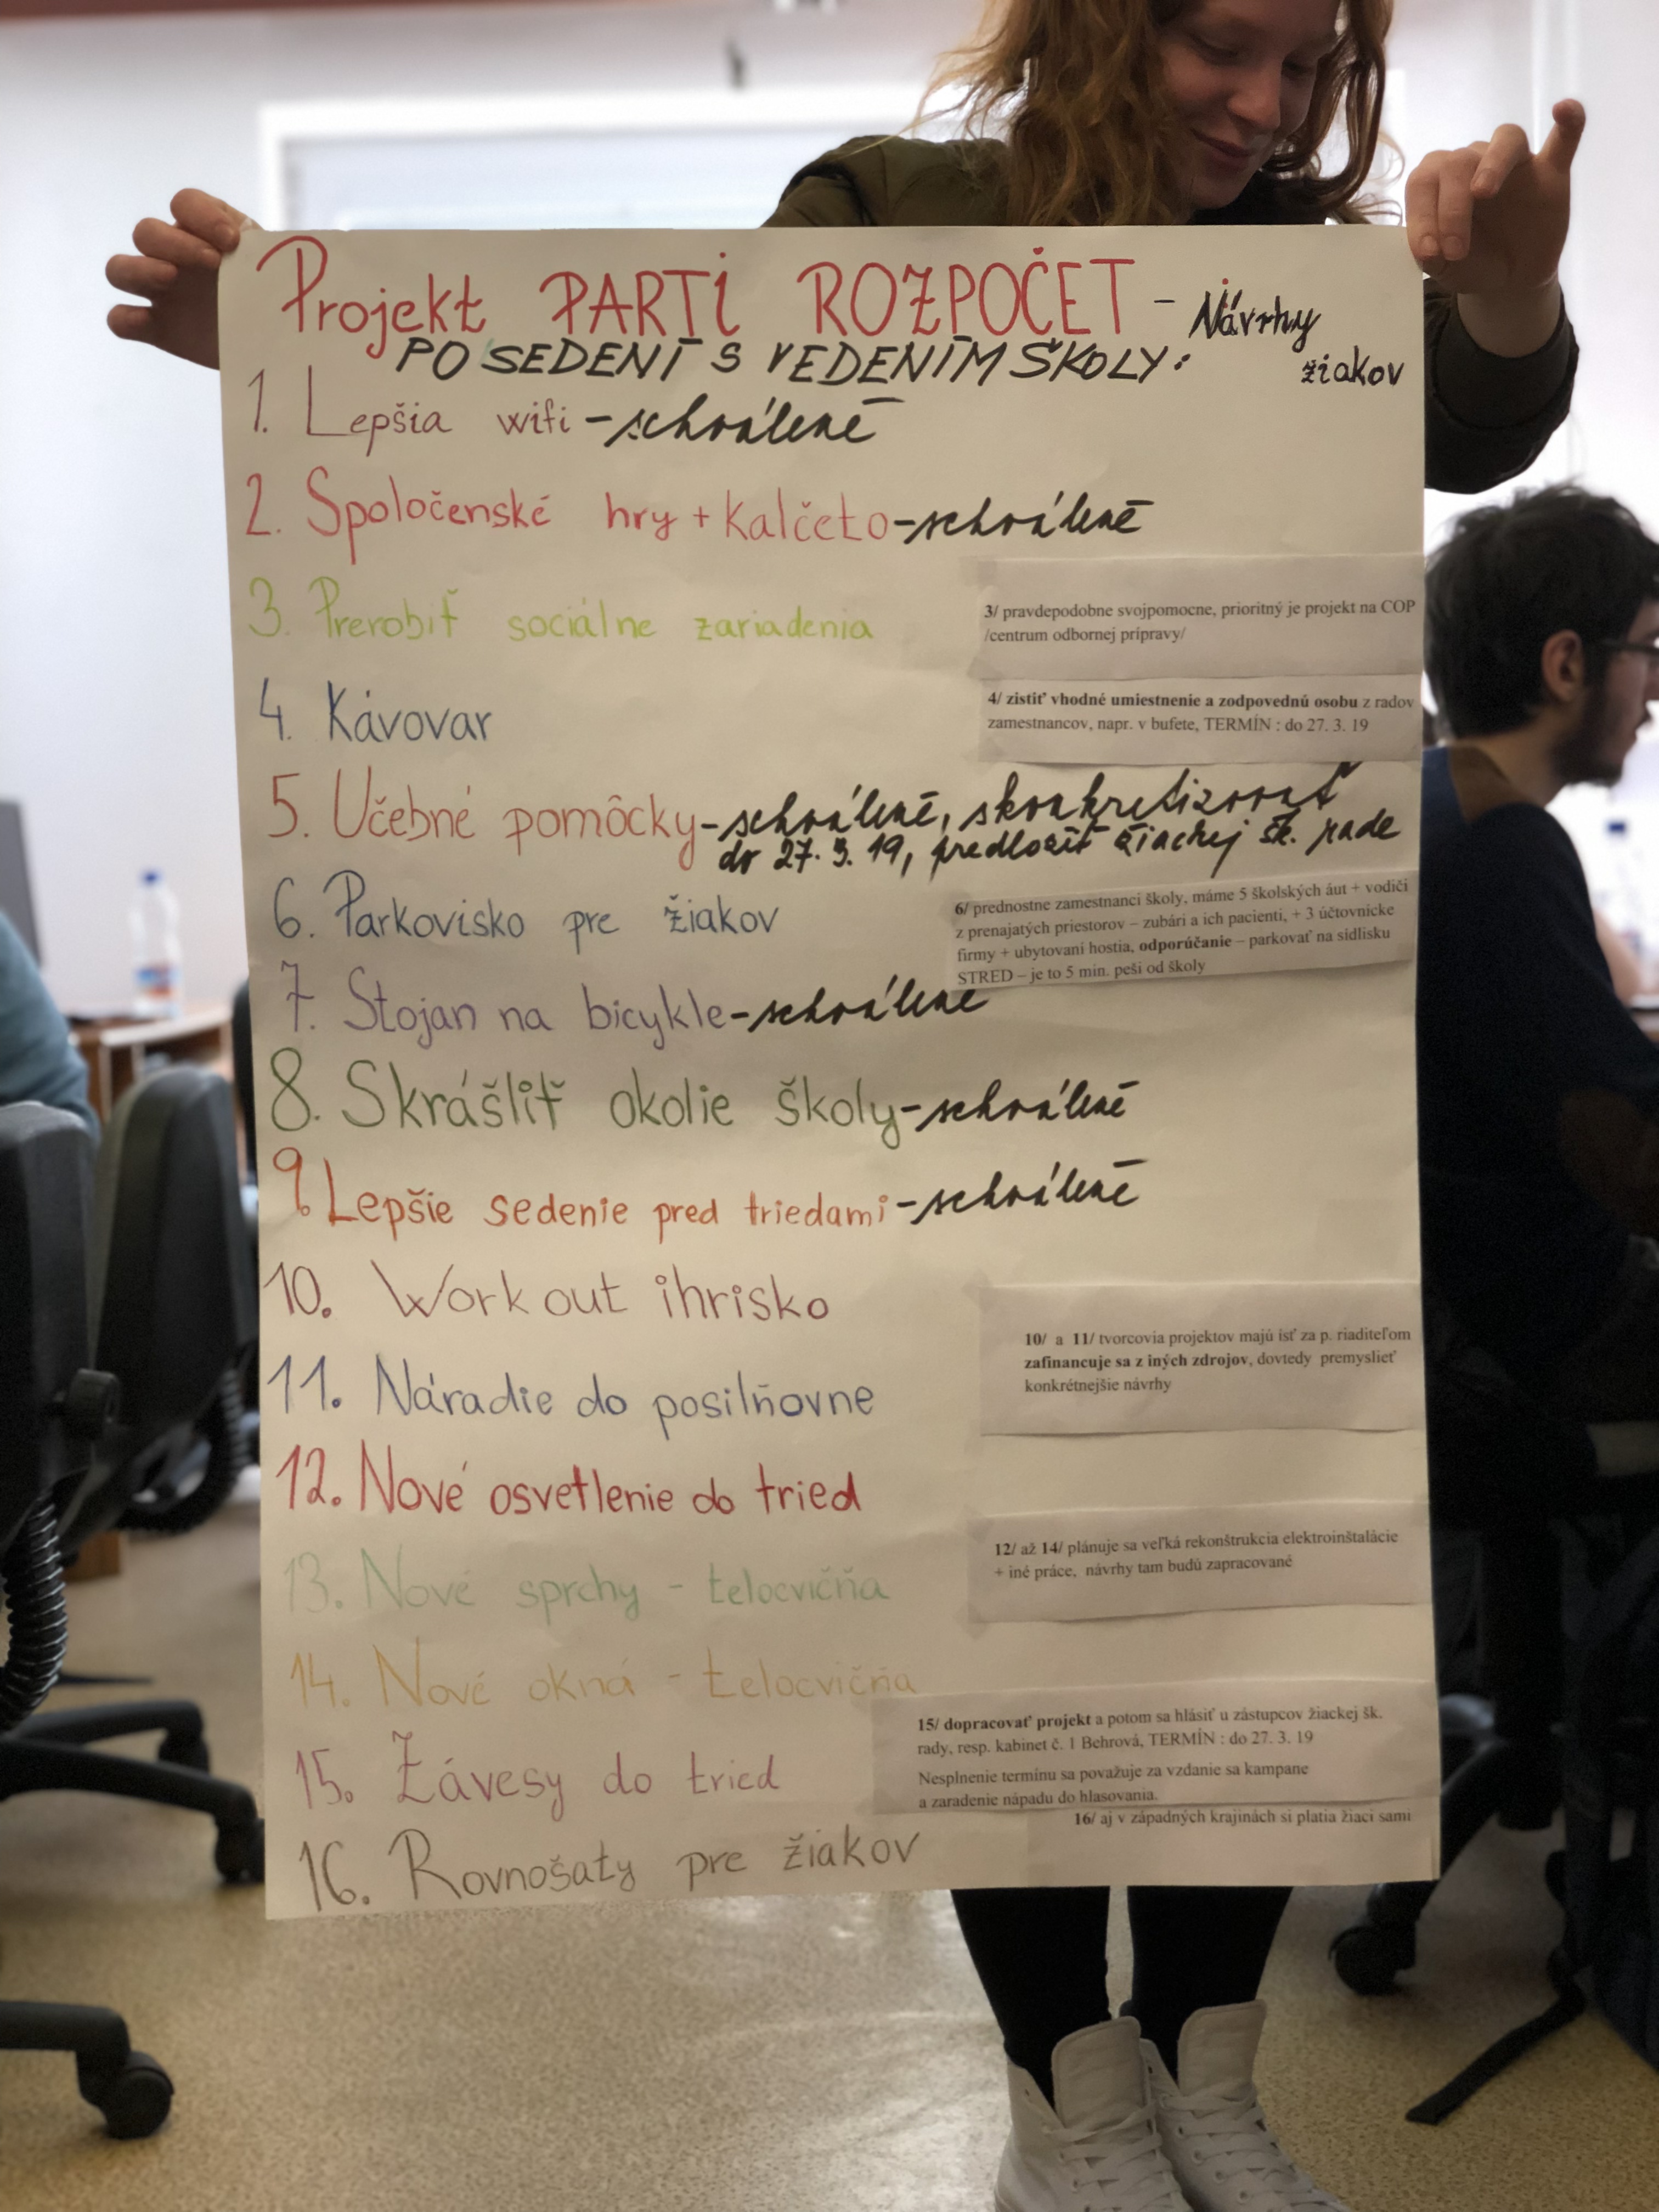 Projekt PARTI ROZPOČET - Návrhy
žiakov
PO SEDENÍ S VEDENÍM ŠKOLY:
1. Lepšia wifi - schválené
2. Spoločenské hry + Kalčeto - schválené
3. Prerobiť sociálne zariadenia
3/ pravdepodobne svojpomocne, prioritný je projekt na COP
/centrum odbornej prípravy/
4. Kávovar
4/ zistiť vhodné umiestnenie a zodpovednú osobu z radov
zamestnancov, napr. v bufete, TERMÍN : do 27. 3. 19
5. Učebné pomôcky - schválené, skonkretizovať
do 27. 3. 19, predložiť žiackej šk. rade
6. Parkovisko pre žiakov
6/ prednostne zamestnanci školy, máme 5 školských áut + vodiči
z prenajatých priestorov – zubári a ich pacienti, + 3 účtovnícke
firmy + ubytovaní hostia, odporúčanie – parkovať na sídlisku
STRED – je to 5 min. peši od školy
7. Stojan na bicykle - schválené
8. Skrášliť okolie školy - schválené
9. Lepšie sedenie pred triedami - schválené
10. Work out ihrisko
11. Náradie do posilňovne
10/ a 11/ tvorcovia projektov majú ísť za p. riaditeľom
zafinancuje sa z iných zdrojov, dovtedy premyslieť
konkrétnejšie návrhy
12. Nové osvetlenie do tried
13. Nové sprchy - telocvičňa
12/ až 14/ plánuje sa veľká rekonštrukcia elektroinštalácie
+ iné práce, návrhy tam budú zapracované
14. Nové okná - telocvičňa
15. Závesy do tried
15/ dopracovať projekt a potom sa hlásiť u zástupcov žiackej šk.
rady, resp. kabinet č. 1 Behrová, TERMÍN : do 27. 3. 19
Nesplnenie termínu sa považuje za vzdanie sa kampane
a zaradenie nápadu do hlasovania.
16/ aj v západných krajinách si platia žiaci sami
16. Rovnošaty pre žiakov